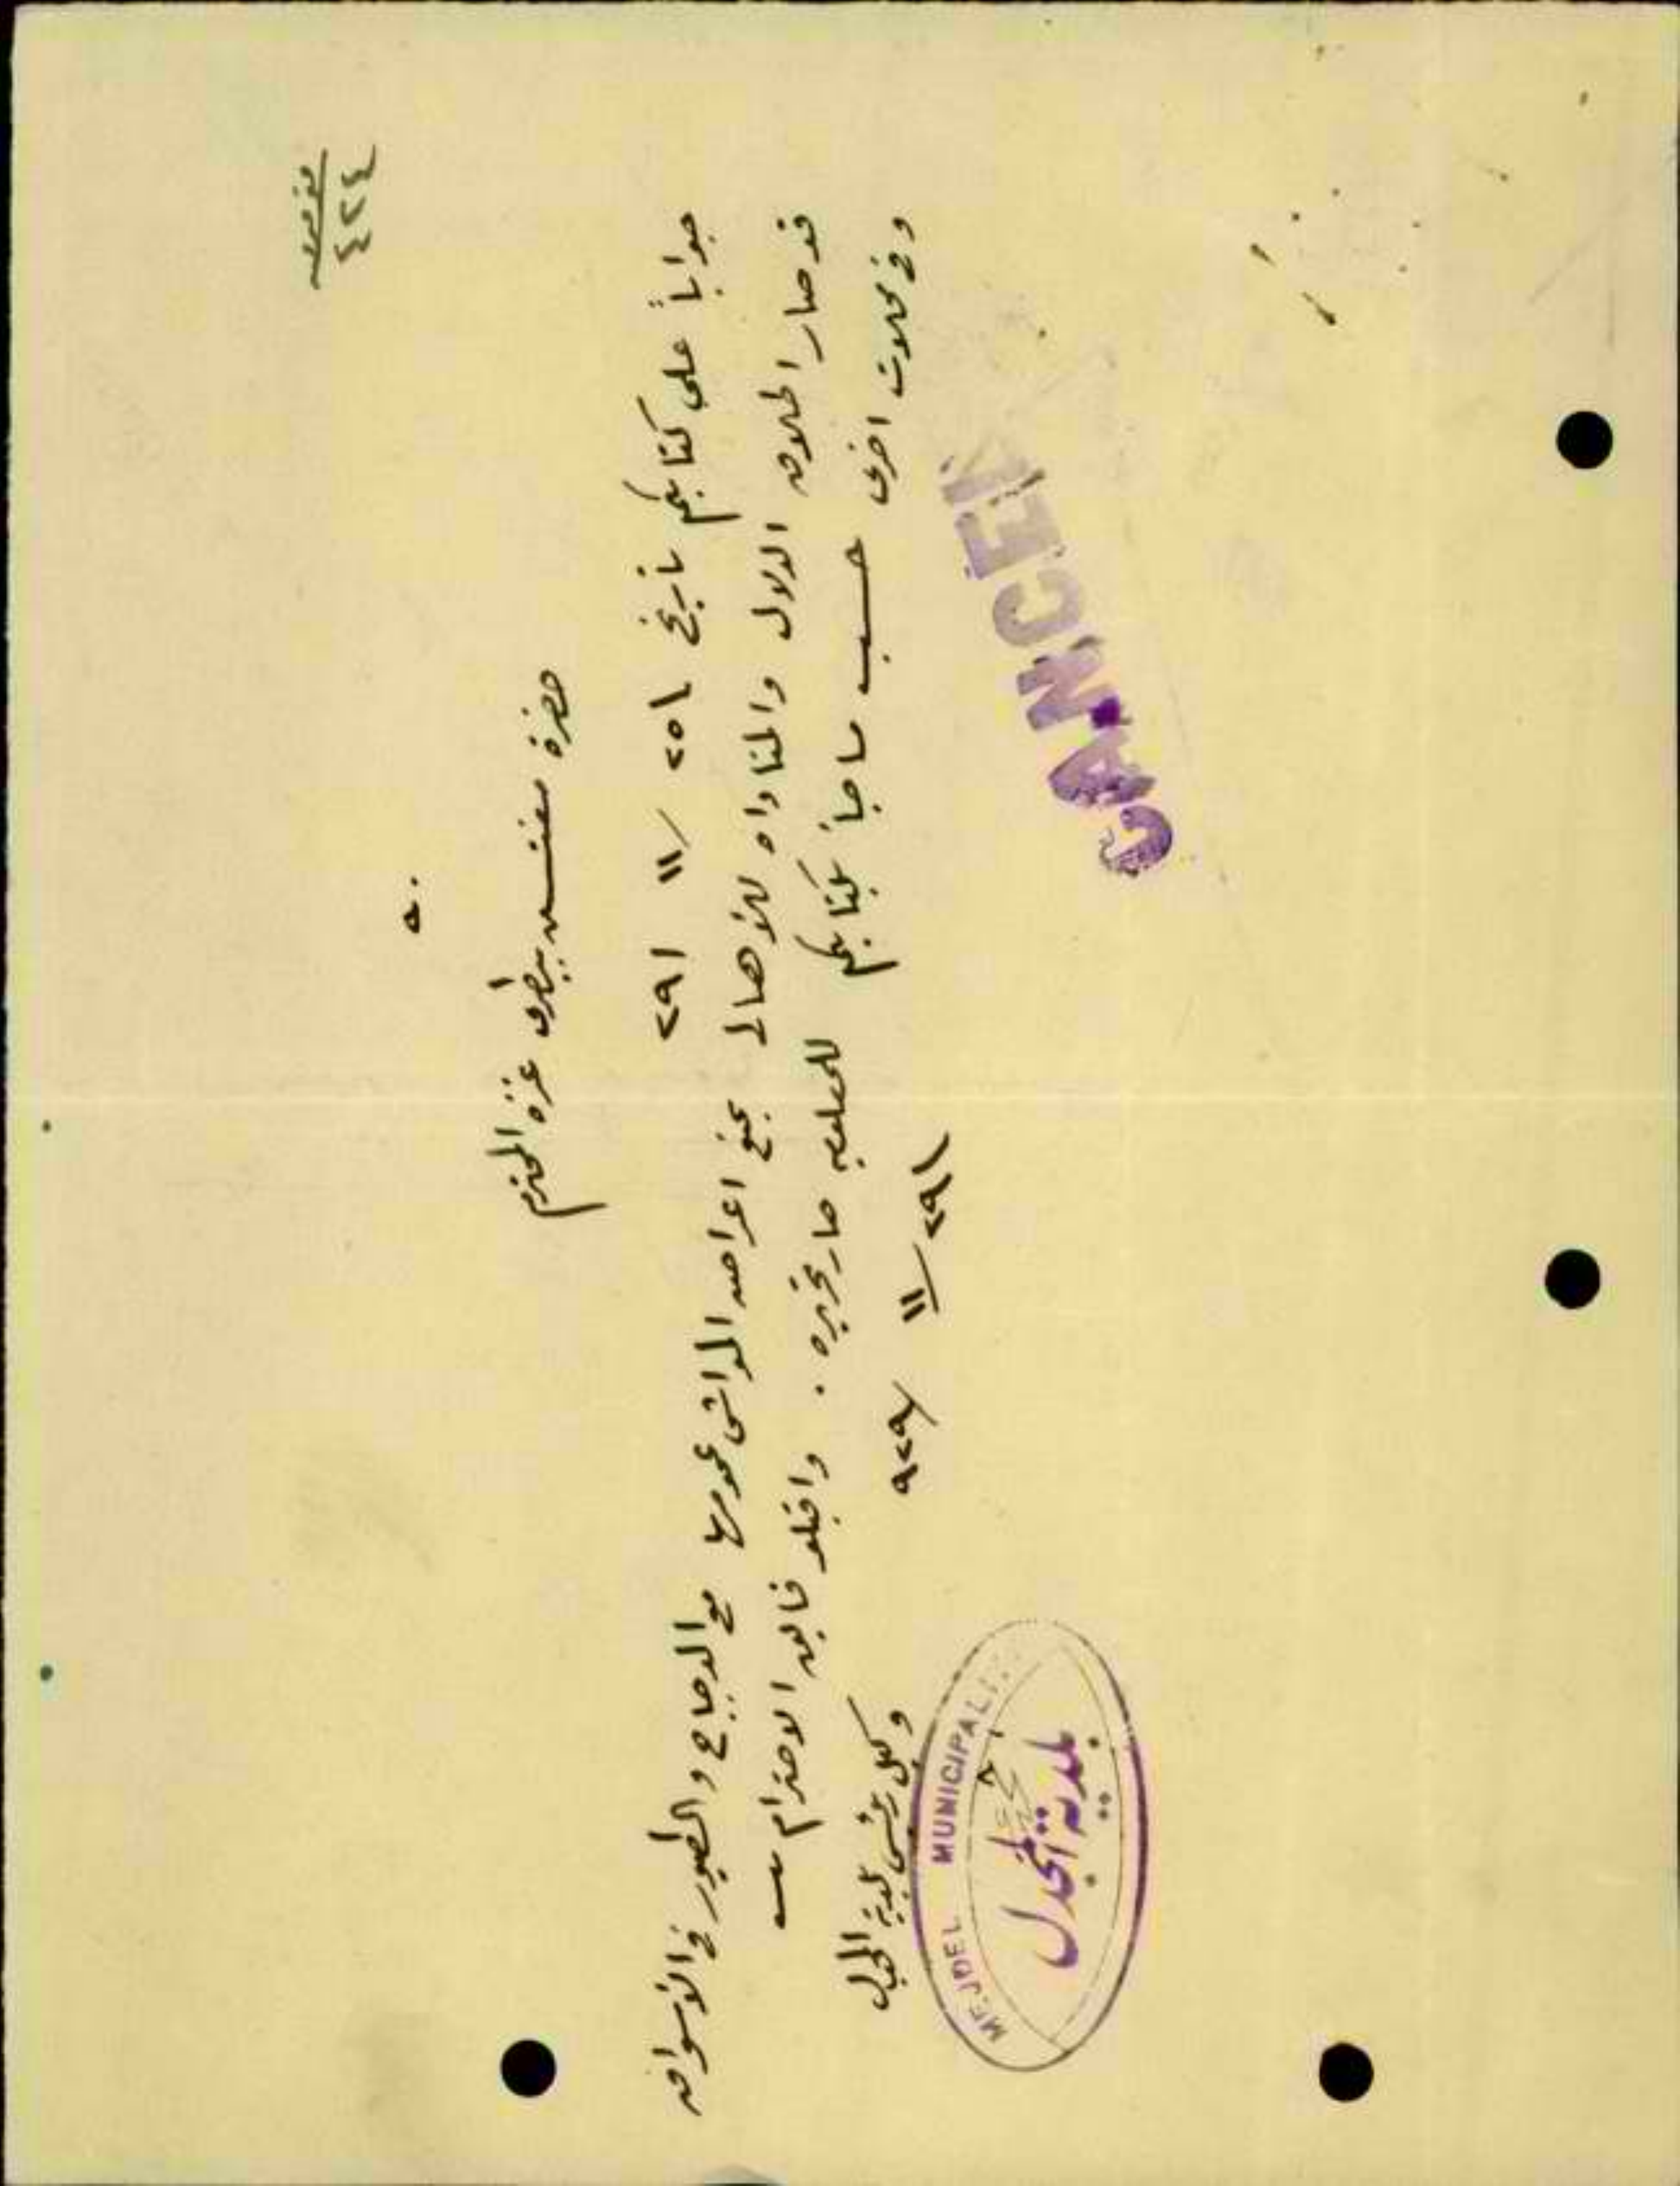 نومرو
٤٢٤
حضرة مفتش بيطرى غزة المحترم
جواباً على كتابكم تاريخ ٢٥١ / ١١ / ٢٩١
قد صار اطلاق الدلال والمناداه للأهالى بمنع اعراض المواشى عموما مع الدجاج والطيور فى الأسواق
وفى محلات اخرى حسب ماجأ بكتابكم للمعلوميه صار تحريره . واقبلو فائق الاحترام
٢٩١ / ١١ / ٩٢٩
وكيل رئيس بلدية المجدل
MEJDEL MUNICIPALITY
بلدية المجدل
CANCEL